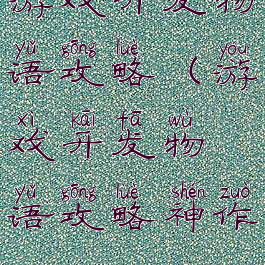 游戏开发物
yǔ gōng lüè yóu
语攻略（游
xì kāi fā wù
戏开发物
yǔ gōng lüè shén zuò
语攻略神作